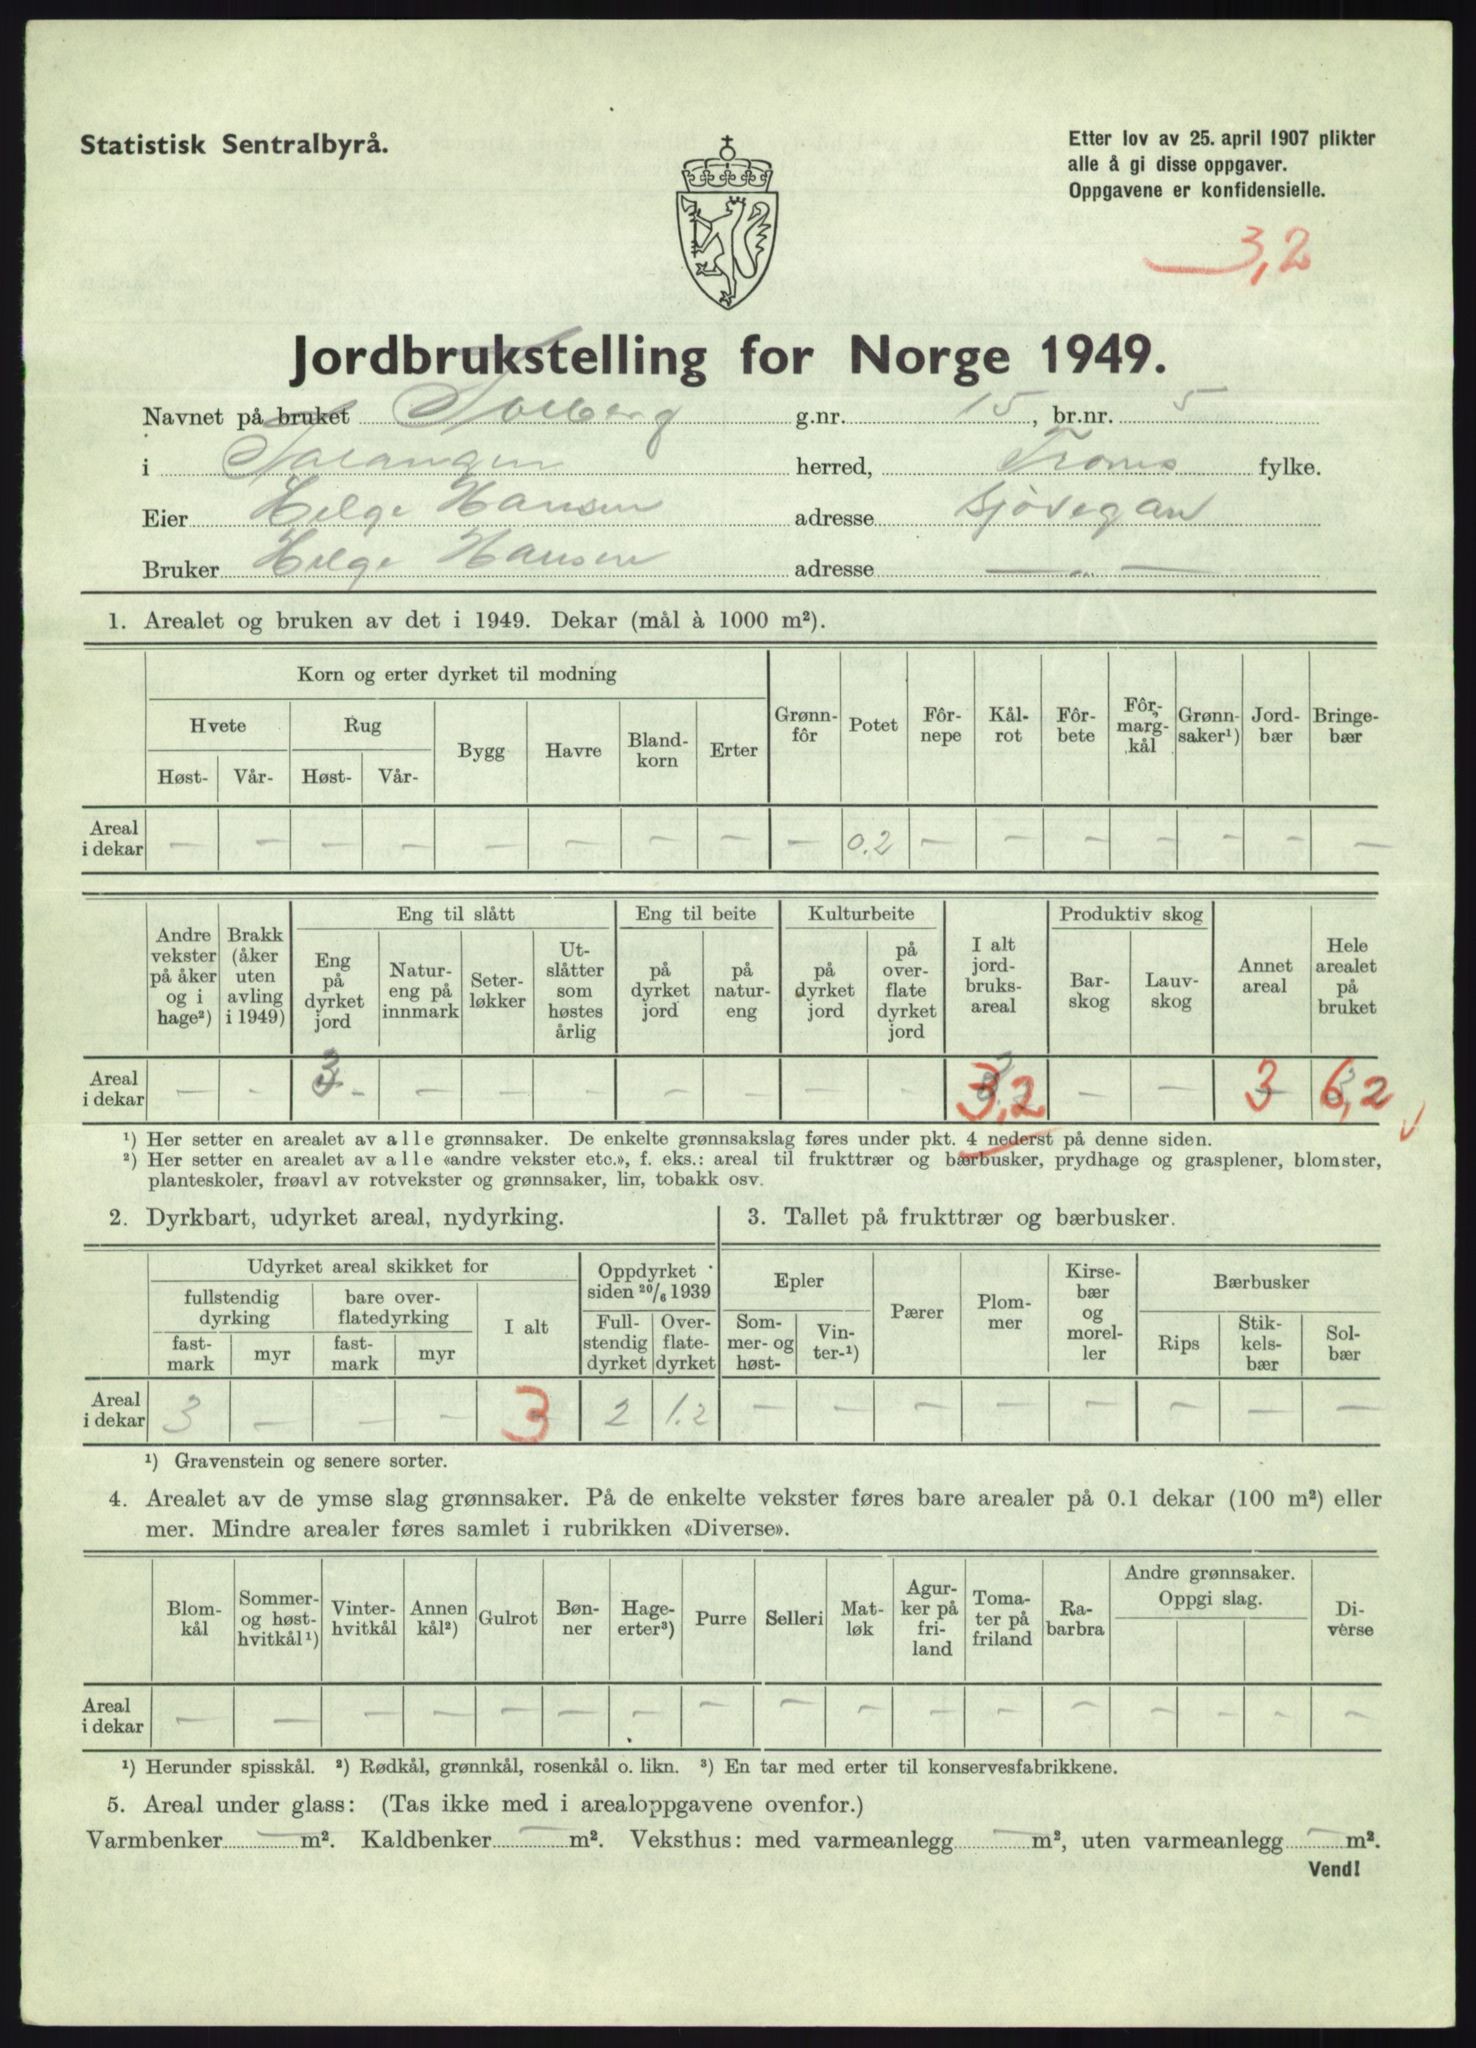 Statistisk Sentralbyrå.
Etter lov av 25. april 1907 plikter
alle å gi disse oppgaver.
Oppgavene er konfidensielle.
3,2
Jordbrukstelling for Norge 1949.
Navnet på bruket Solberg g.nr. 15, br.nr. 5
i Salangen herred, Troms fylke.
Eier Helge Hansen adresse Sjøvegan
Bruker Helge Hansen adresse — „ —
1. Arealet og bruken av det i 1949. Dekar (mål à 1000 m²).
Korn og erter dyrket til modning
Hvete Rug Bygg Havre Bland-korn Erter Grønn-fôr Potet Fôr-nepe Kål-rot Fôr-bete Fôr-marg-kål Grønn-saker¹) Jord-bær Bringe-bær
Høst- Vår- Høst- Vår-
Areal i dekar — — — — — — — — — 0.2 — — — — — — —
Eng til slått Eng til beite Kulturbeite Produktiv skog
Andre vekster på åker og i hage²) Brakk (åker uten avling i 1949) Eng på dyrket jord Natur-eng på innmark Seter-løkker Ut-slåtter som høstes årlig på dyrket jord på natur-eng på dyrket jord på over-flate dyrket jord I alt jord-bruks-areal Bar-skog Lauv-skog Annet areal Hele arealet på bruket
Areal i dekar — — 3 — — — — — — — 3,2 — — 3 6,2
¹) Her setter en arealet av alle grønnsaker. De enkelte grønnsakslag føres under pkt. 4 nederst på denne siden.
²) Her setter en arealet av alle «andre vekster etc.», f. eks.: areal til frukttrær og bærbusker, prydhage og grasplener, blomster,
planteskoler, frøavl av rotvekster og grønnsaker, lin, tobakk osv.
2. Dyrkbart, udyrket areal, nydyrking.
3. Tallet på frukttrær og bærbusker.
Udyrket areal skikket for Oppdyrket siden 20/6 1939 Epler Pærer Plom-mer Kirse-bær og morel-ler Bærbusker
fullstendig dyrking bare over-flatedyrking I alt Full-stendig dyrket Over-flate-dyrket Som-mer- og høst- Vin-ter-¹) Rips Stik-kels-bær Sol-bær
fast-mark myr fast-mark myr
Areal i dekar 3 — — — 3 2 1.2 — — — — — — — —
¹) Gravenstein og senere sorter.
4. Arealet av de ymse slag grønnsaker. På de enkelte vekster føres bare arealer på 0.1 dekar (100 m²) eller
mer. Mindre arealer føres samlet i rubrikken «Diverse».
Blom-kål Sommer- og høst-hvitkål¹) Vinter-hvitkål Annen kål²) Gulrot Bøn-ner Hage-erter³) Purre Selleri Mat-løk Agur-ker på fri-land Toma-ter på friland Ra-barbra Andre grønnsaker. Oppgi slag. Di-verse
Areal i dekar — — — — — — — — — — — — — — — — —
¹) Herunder spisskål. ²) Rødkål, grønnkål, rosenkål o. likn. ³) En tar med erter til konservesfabrikkene.
5. Areal under glass: (Tas ikke med i arealoppgavene ovenfor.)
Varmbenker — m². Kaldbenker — m². Veksthus: med varmeanlegg — m², uten varmeanlegg — m².
Vend!